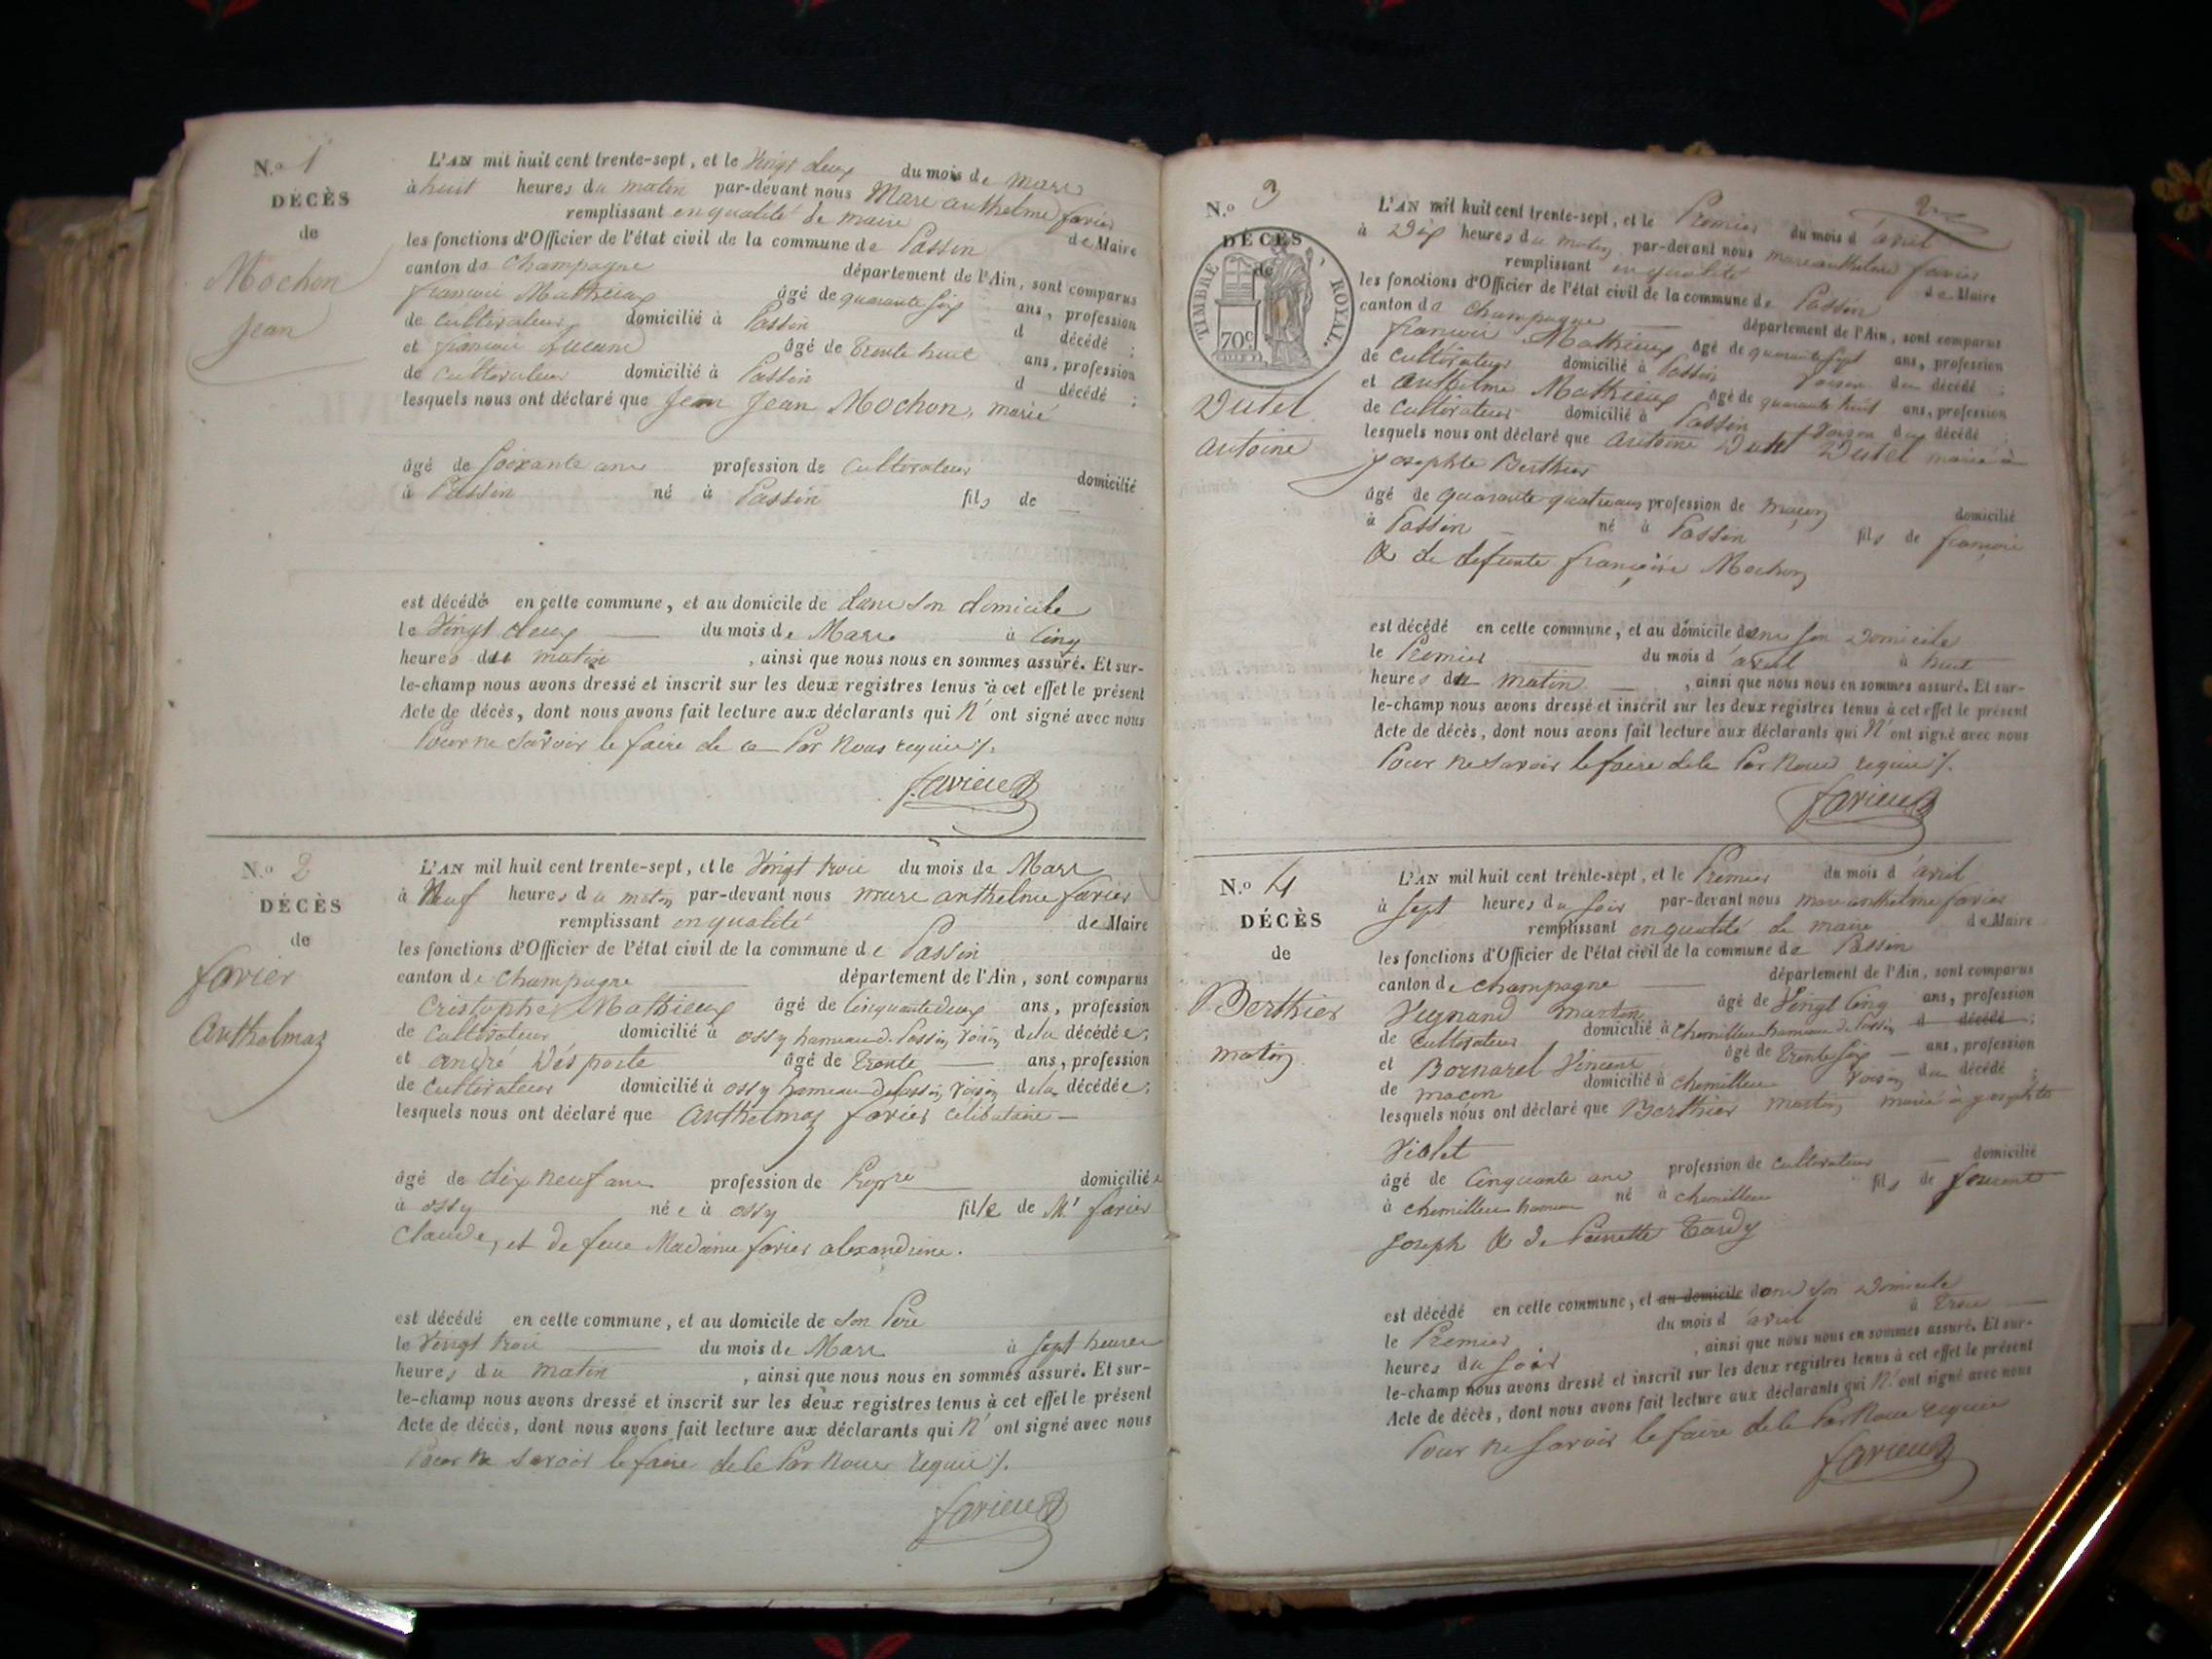 N.o 1
DÉCÈS
de
Mochon
Jean
L'AN mil huit cent trente-sept, et le Vingt deux du mois de mars
à huit heures du matin par-devant nous Marc anthelme favier
remplissant en qualité de maire de Maire
les fonctions d'Officier de l'état civil de la commune de Passin
canton de Champagne département de l'Ain, sont comparus
françois Mathieux âgé de quarante six ans, profession
de cultivateur domicilié à Passin d décédé ;
et françois âgé de trente huit ans, profession
de cultivateur domicilié à Passin d décédé ;
lesquels nous ont déclaré que Jean Jean Mochon, marié
âgé de soixante ans profession de cultivateur domicilié
à Passin né à Passin fils de
est décédé en cette commune, et au domicile de dans son domicile
le Vingt deux du mois de Mars à cinq
heures du matin, ainsi que nous nous en sommes assuré. Et sur-
le-champ nous avons dressé et inscrit sur les deux registres tenus à cet effet le présent
Acte de décès, dont nous avons fait lecture aux déclarants qui n' ont signé avec nous
Pour ne savoir le faire de ce Par Nous requis /.
favier
N.o 2
DÉCÈS
de
favier
Anthelmaz
L'AN mil huit cent trente-sept, et le Vingt trois du mois de Mars
à Neuf heures du matin par-devant nous marc anthelme favier
remplissant en qualité de Maire
les fonctions d'Officier de l'état civil de la commune de Passin
canton de Champagne département de l'Ain, sont comparus
Cristophe Mathieux âgé de cinquante deux ans, profession
de cultivateur domicilié à ossy hameau de Passin, voisin de la décédée ;
et andré Désporte âgé de trente ans, profession
de cultivateur domicilié à ossy hameau de Passin, voisin de la décédée ;
lesquels nous ont déclaré que anthelmaz favier célibataire
âgé de dix neuf ans profession de Propre domiciliée
à ossy née à ossy fille de Mr favier
Claude, et de feue Madame favier alexandrine.
est décédé en cette commune, et au domicile de son Père
le Vingt trois du mois de Mars à sept heures
heures du matin, ainsi que nous nous en sommes assuré. Et sur-
le-champ nous avons dressé et inscrit sur les deux registres tenus à cet effet le présent
Acte de décès, dont nous avons fait lecture aux déclarants qui n' ont signé avec nous
Pour ne savoir le faire de le Par Nous requis /.
favier
2me
N.o 3
DÉCÈS
de
TIMBRE ROYAL.
70c
Dutel
antoine
L'AN mil huit cent trente-sept, et le Premier du mois d'avril
à Dix heures du matin par-devant nous marc anthelme favier
remplissant en qualité de Maire
les fonctions d'Officier de l'état civil de la commune de Passin
canton de Champagne département de l'Ain, sont comparus
françois Mathieux âgé de quarante sept ans, profession
de cultivateur domicilié à Passin voisin du décédé ;
et anthelme Mathieux âgé de quarante huit ans, profession
de cultivateur domicilié à Passin voisin du décédé ;
lesquels nous ont déclaré que antoine Dutel Dutel marié à
josephte Berthier
âgé de quarante quatre ans profession de maçon domicilié
à Passin né à Passin fils de françois
& de defunte françoise Mochon
est décédé en cette commune, et au domicile dans son Domicile
le Premier du mois d'avril à huit
heures du matin, ainsi que nous nous en sommes assuré. Et sur-
le-champ nous avons dressé et inscrit sur les deux registres tenus à cet effet le présent
Acte de décès, dont nous avons fait lecture aux déclarants qui n' ont signé avec nous
Pour ne savoir le faire de le Par Nous requis /.
favier
N.o 4
DÉCÈS
de
Berthier
martin
L'AN mil huit cent trente-sept, et le Premier du mois d'avril
à sept heures du soir par-devant nous marc anthelme favier
remplissant en qualité de maire de Maire
les fonctions d'Officier de l'état civil de la commune de Passin
canton de Champagne département de l'Ain, sont comparus
Vugnand martin âgé de Vingt cinq ans, profession
de cultivateur domicilié à Chemilleu hameau de Passin d décédé ;
et Bornarel Vincent âgé de trente six ans, profession
de maçon domicilié à chemilleu voisin du décédé ;
lesquels nous ont déclaré que Berthier martin marié à josephte
Violet
âgé de cinquante ans profession de cultivateur domicilié
à chemilleu hameau né à chemilleu fils de
joseph & de Pernette Tardy
est décédé en cette commune, et au domicile dans son Domicile
le Premier du mois d'avril à trois
heures du soir, ainsi que nous nous en sommes assuré. Et sur-
le-champ nous avons dressé et inscrit sur les deux registres tenus à cet effet le présent
Acte de décès, dont nous avons fait lecture aux déclarants qui n' ont signé avec nous
Pour ne savoir le faire de le Par Nous requis
favier